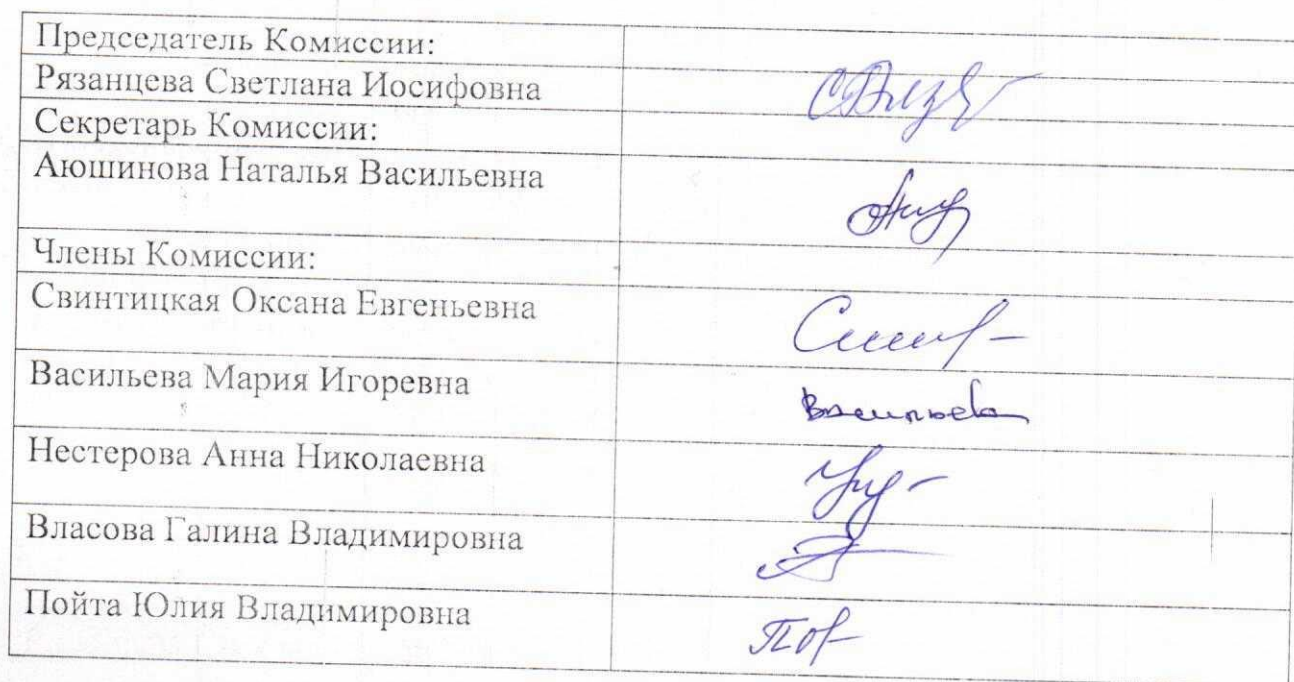 Председатель Комиссии:
Рязанцева Светлана Иосифовна
Секретарь Комиссии:
Аюшинова Наталья Васильевна
Члены Комиссии:
Свинтицкая Оксана Евгеньевна
Васильева Мария Игоревна
Васильева
Нестерова Анна Николаевна
Власова Галина Владимировна
Пойта Юлия Владимировна